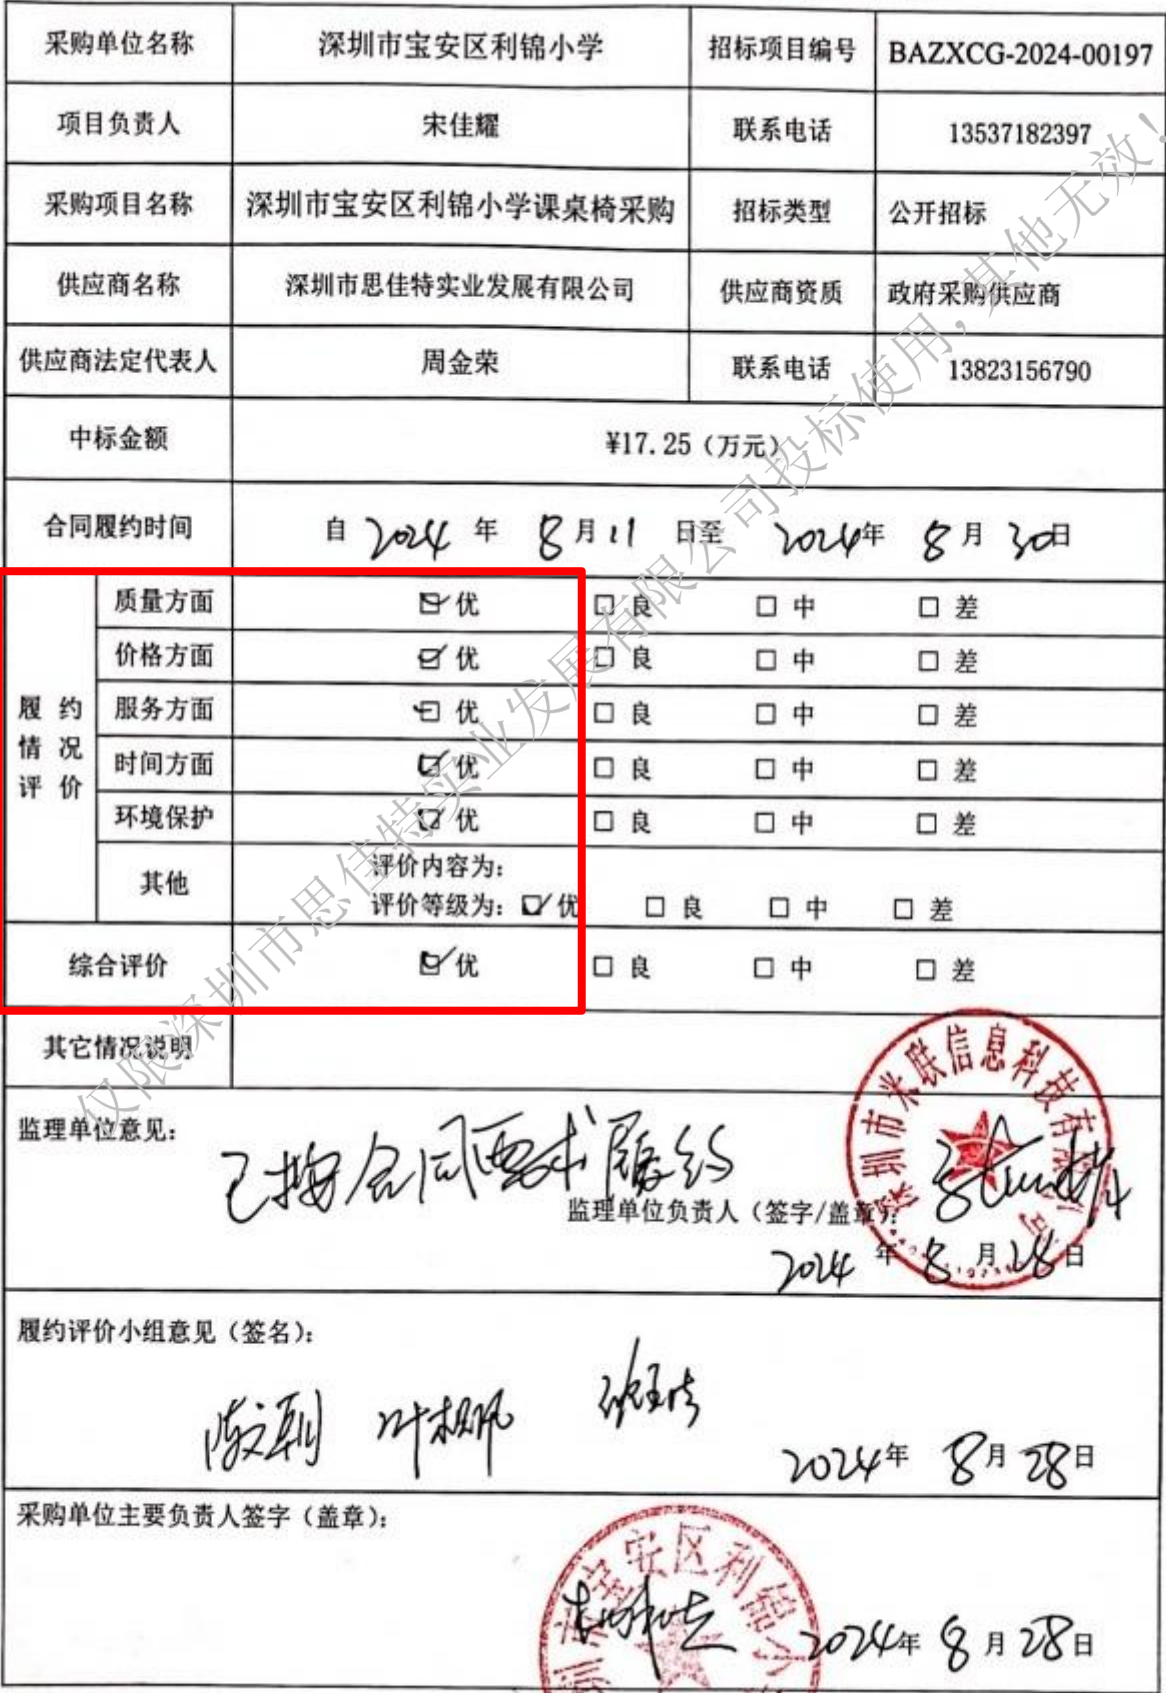 采购单位名称 深圳市宝安区利锦小学 招标项目编号 BAZXCG-2024-00197
项目负责人 宋佳耀 联系电话 13537182397
采购项目名称 深圳市宝安区利锦小学课桌椅采购 招标类型 公开招标
供应商名称 深圳市思佳特实业发展有限公司 供应商资质 政府采购供应商
供应商法定代表人 周金荣 联系电话 13823156790
中标金额 ¥17.25（万元）
合同履约时间 自 2024 年 8 月 11 日至 2024 年 8 月 30 日
履约情况评价
质量方面 ☑ 优 □ 良 □ 中 □ 差
价格方面 ☑ 优 □ 良 □ 中 □ 差
服务方面 ☑ 优 □ 良 □ 中 □ 差
时间方面 ☑ 优 □ 良 □ 中 □ 差
环境保护 ☑ 优 □ 良 □ 中 □ 差
其他 评价内容为：
评价等级为：☑ 优 □ 良 □ 中 □ 差
综合评价 ☑ 优 □ 良 □ 中 □ 差
其它情况说明
监理单位意见：
已按合同要求履约
监理单位负责人（签字/盖章）：
2024 年 8 月 28 日
深圳市米联信息科技有限公司
履约评价小组意见（签名）：
2024 年 8 月 28 日
采购单位主要负责人签字（盖章）：
2024 年 8 月 28 日
圳市宝安区利锦小
仅限深圳市思佳特实业发展有限公司投标使用，其他无效！